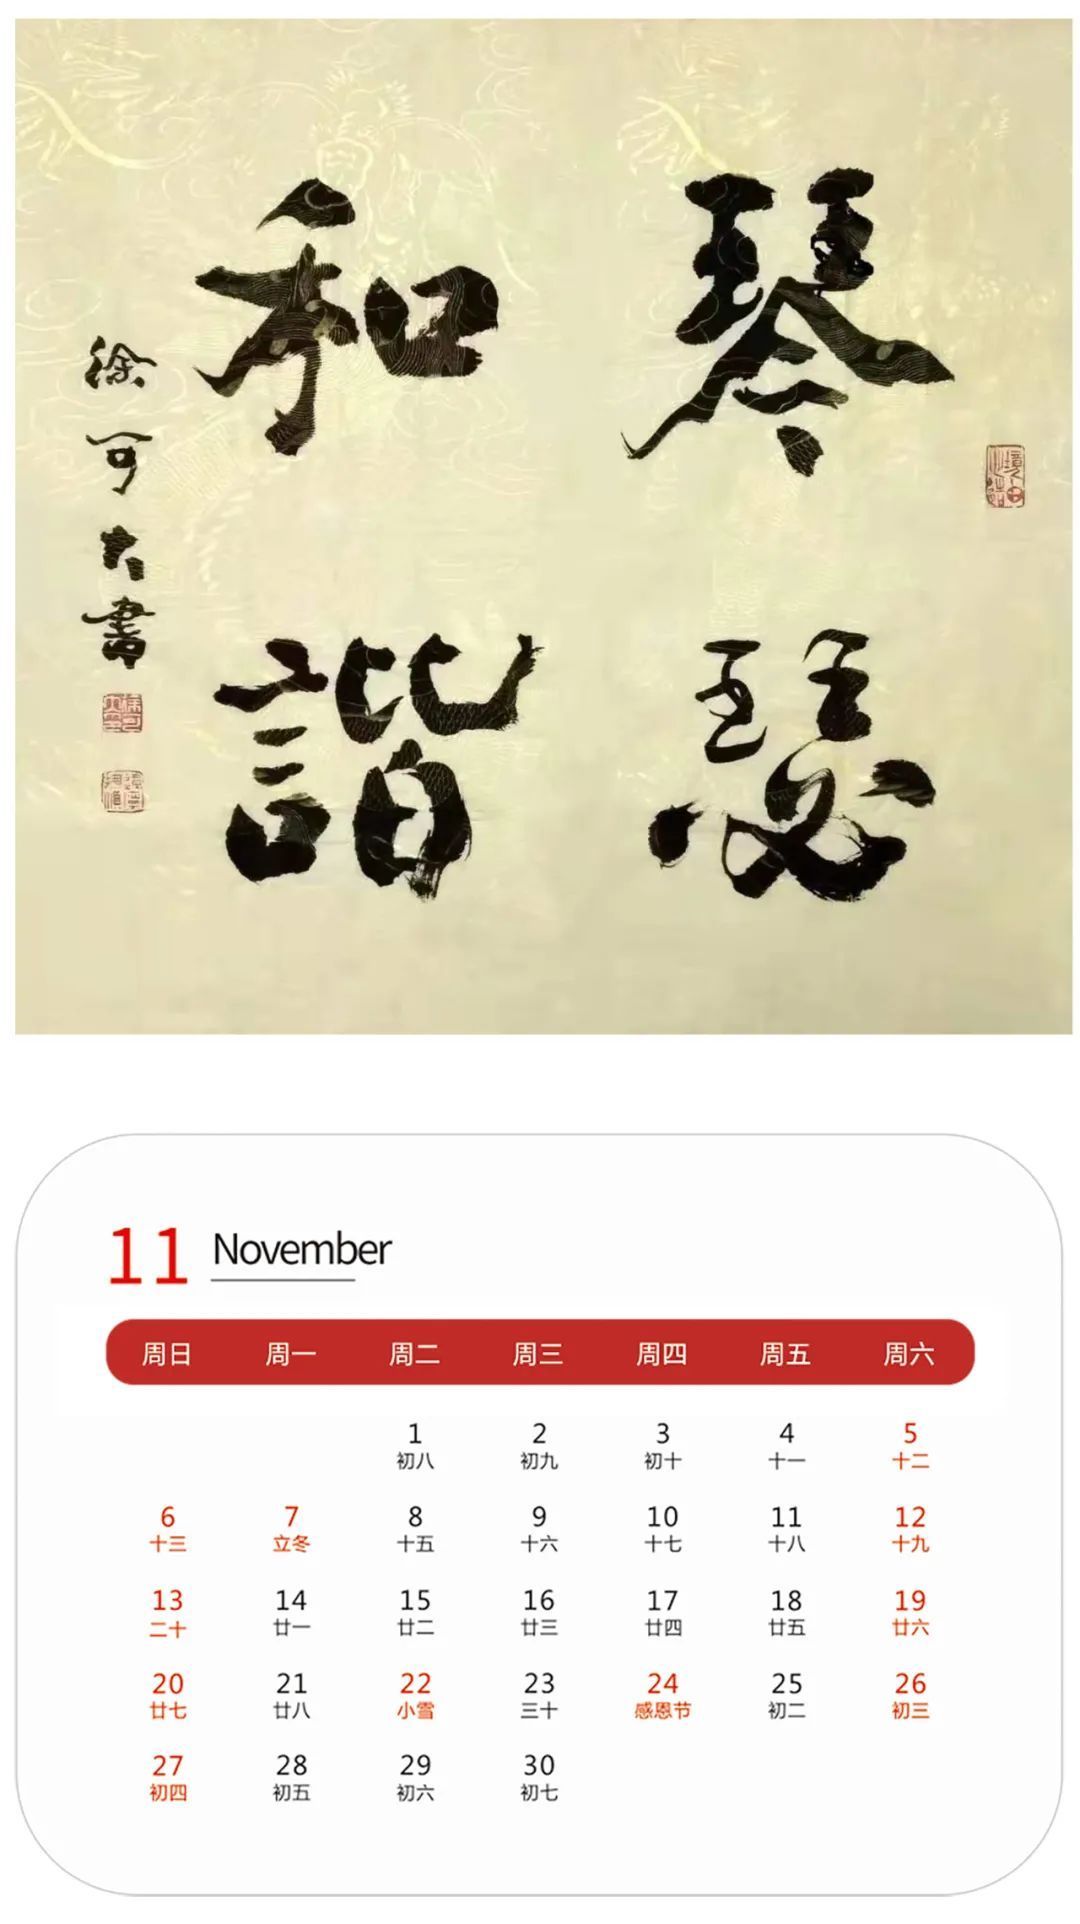 琴瑟
和諧
徐可大書
11 November
周日 周一 周二 周三 周四 周五 周六
1 2 3 4 5
初八 初九 初十 十一 十二
6 7 8 9 10 11 12
十三 立冬 十五 十六 十七 十八 十九
13 14 15 16 17 18 19
二十 廿一 廿二 廿三 廿四 廿五 廿六
20 21 22 23 24 25 26
廿七 廿八 小雪 三十 感恩节 初二 初三
27 28 29 30
初四 初五 初六 初七